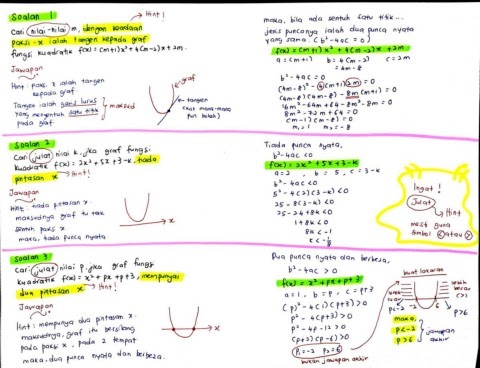 Soalan 1
Hint!
Cari nilai-nilai m, dengan keadaan
paksi-x ialah tangen kepada graf
fungsi kuadratik f(x) = (m+1)x² + 4(m-2)x + 2m.
Jawapan
Hint: paksi x ialah tangen
kepada graf.
Tangen ialah garis lurus
yang menyentuh satu titik
pada graf.
maksud
graf
tangen
maka, bila ada sentuh satu titik...
jenis puncanya ialah dua punca nyata
yang sama. (b²-4ac = 0)
f(x) = (m+1)x² + 4(m-2)x + 2m
a = (m+1) b = 4(m-2) c = 2m
= 4m-8
b²-4ac = 0
(4m-8)² - 4(m+1)(2m) = 0
(4m-8)(4m-8) - 8m(m+1) = 0
16m² - 64m + 64 - 8m² - 8m = 0
8m² - 72m + 64 = 0
(m-1)(m-8) = 0
m₁ = 1 m₂ = 8
Soalan 2
Cari julat nilai k, jika graf fungsi
kuadratik f(x) = 2x² + 5x + 3 - k, tiada
pintasan x
Hint!
Jawapan
Hint: tiada pintasan x.
maksudnya graf tu tak
sentuh paksi x
maka, tiada punca nyata
x
Tiada punca nyata,
b²-4ac < 0
f(x) = 2x² + 5x + 3 - k
a = 2, b = 5, c = 3 - k
b²-4ac < 0
5² - 4(2)(3-k) < 0
25 - 8(3-k) < 0
25 - 24 + 8k < 0
1 + 8k < 0
8k < -1
k < -1/8
Ingat!
Julat
Hint
mesti guna
simbol < atau >
Soalan 3
Cari julat nilai p, jika graf fungsi
kuadratik f(x) = x² + px + p + 3, mempunyai
dua pintasan x
Hint!
Jawapan
Hint: mempunyai dua pintasan x.
maksudnya, graf itu bersilang
pada paksi x, pada 2 tempat
maka, dua punca nyata dan berbeza.
x
Dua punca nyata dan berbeza,
b²-4ac > 0
f(x) = x² + px + p + 3
a = 1, b = p, c = p + 3
(p)² - 4(1)(p+3) > 0
p² - 4(p+3) > 0
p² - 4p - 12 > 0
(p+2)(p-6) > 0
p₁ = -2 p₂ = 6
bukan jawapan akhir
buat lakaran
lebih
besar
(>)
p<-2 -2 6 p>6
maka,
p < -2
p > 6
jawapan
akhir